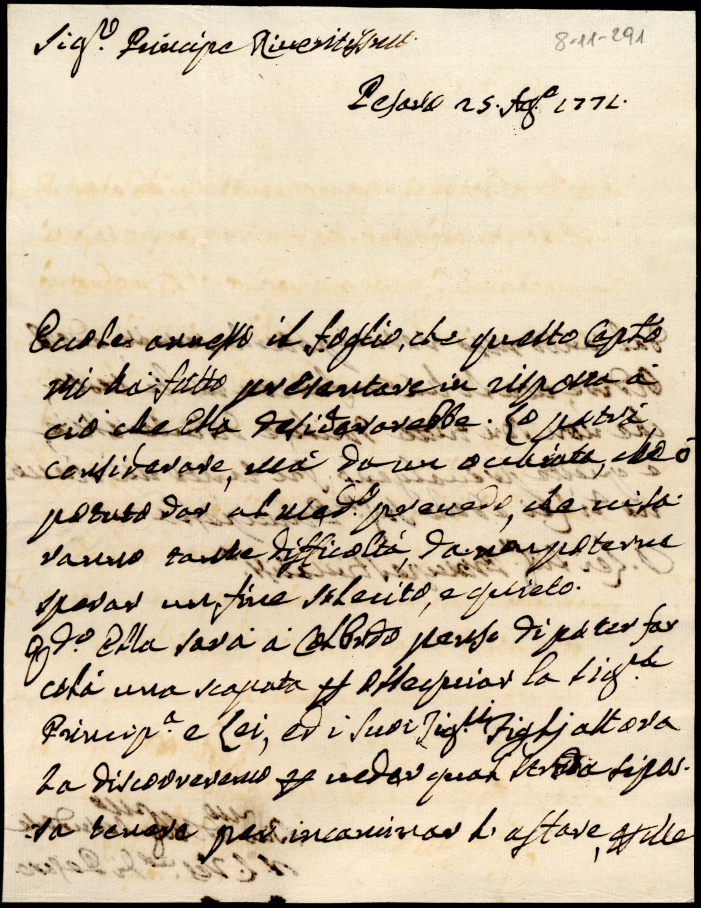 Sig.r Principe Riveritissmo
8-11-291
Pesaro 25. Ag.o 1771.
Eccole annesso il foglio, che questo Capito
mi ha fatto presentare in risposta a
ciò che Ella desiderarebbe. Lo potrà
considerare, mà da un occhiata, che ò
potuto dar al med.o prevedo, che vi sa-
ranno tante difficoltà, da non poterne
sperar un fine solecito, e quieto.
Qdo Ella sarà a penso di poter far
colà una scapata p ossequiar la Sig.ra
Princip.a e Lei, ed i suoi Sig.ri Figlj allora
la discorreremo p veder qual strada si pos-
sa tenere per incaminar l'affare,